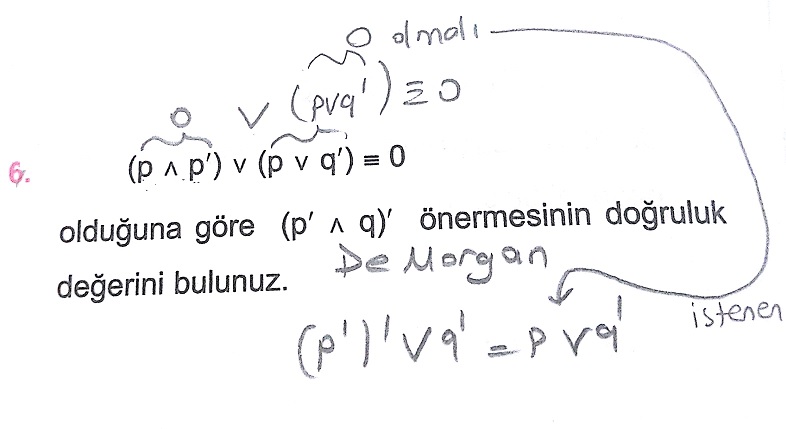 0 olmalı
0 ∨ (p∨q') ≡ 0
6. (p ∧ p′) ∨ (p ∨ q′) ≡ 0
olduğuna göre (p′ ∧ q)′ önermesinin doğruluk
değerini bulunuz. De Morgan
(p')' ∨ q' = p ∨ q'
istenen